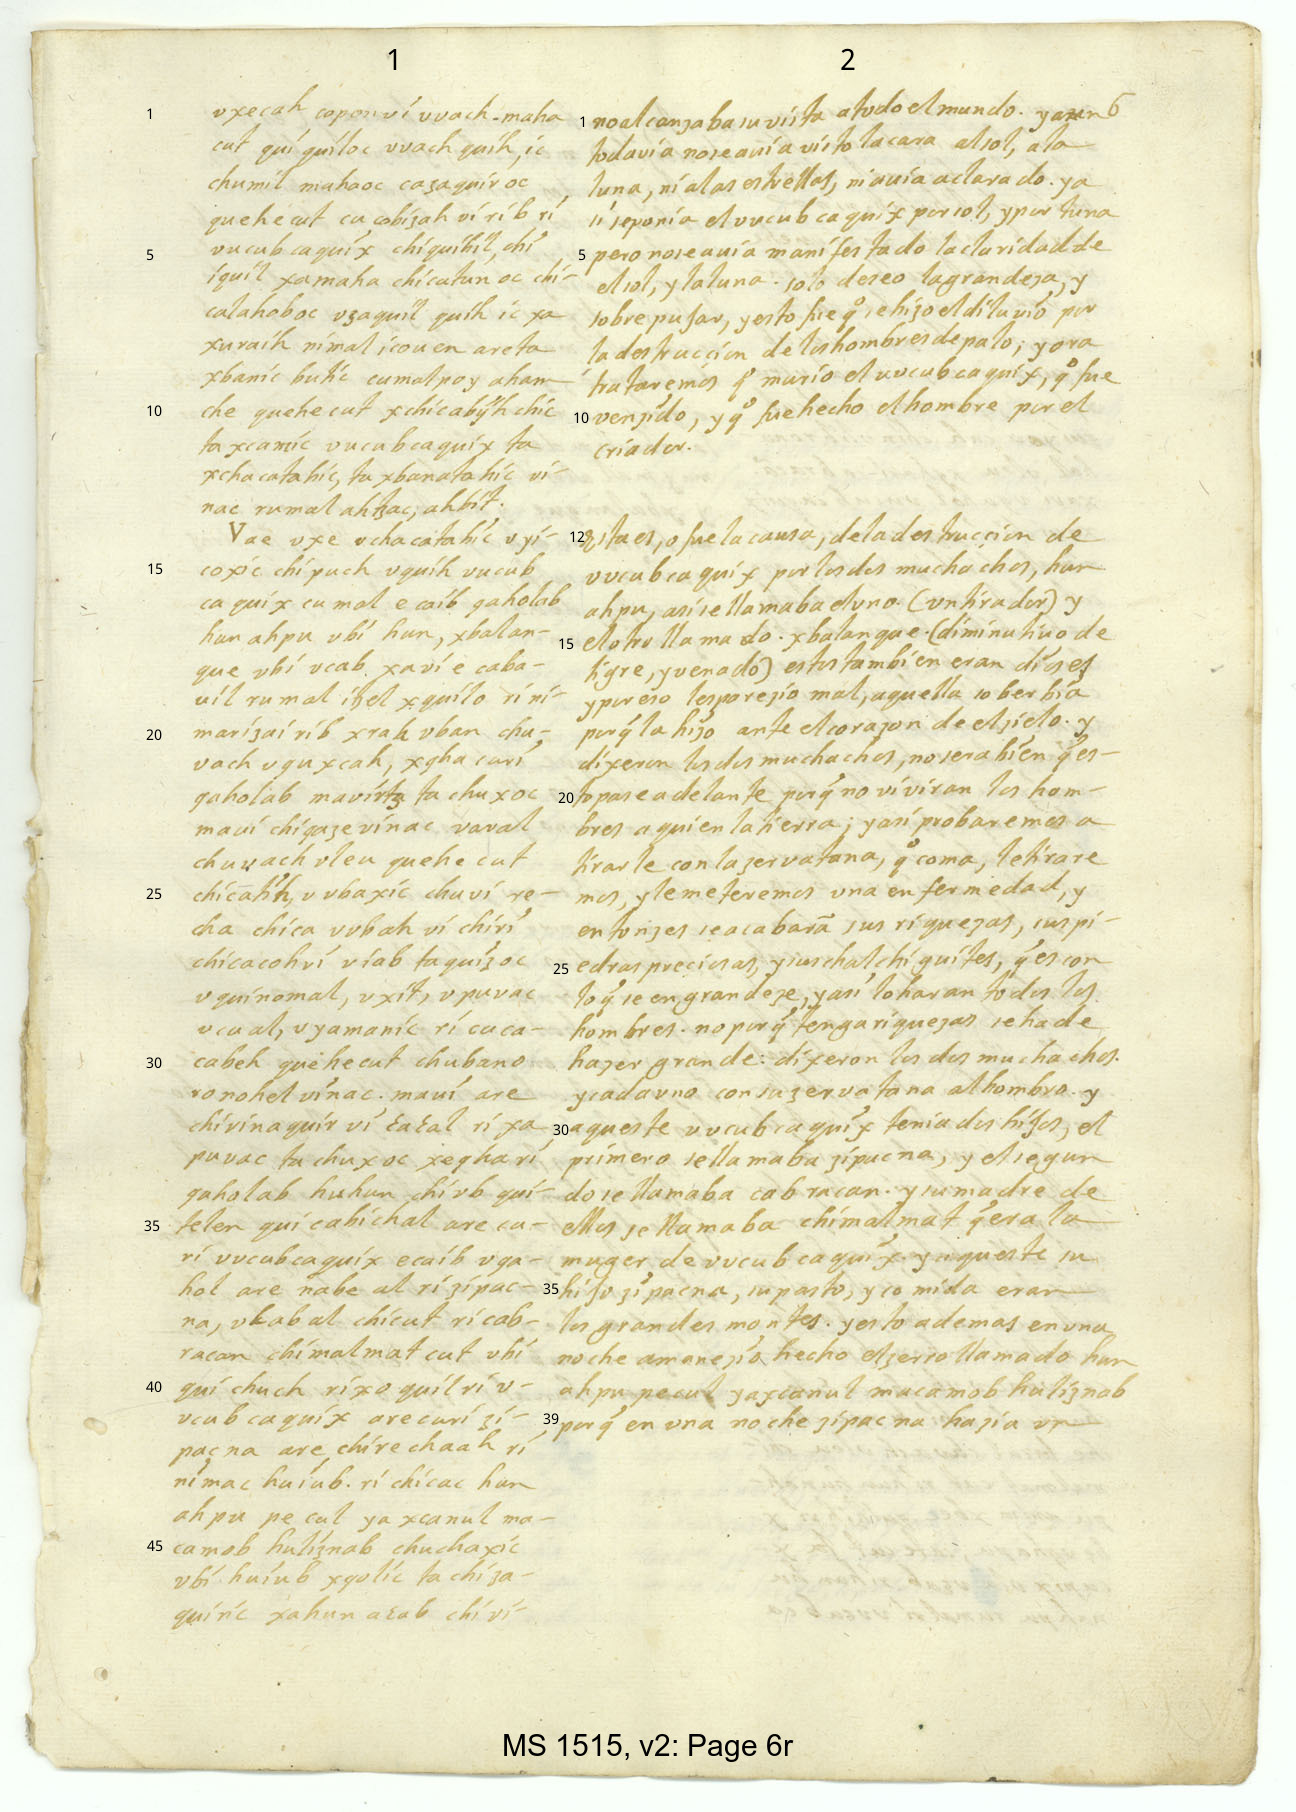 1
vxecah copon ví vvach. maha
cut quí quíloc vvach quíh, ic
chumíl mahaoc cazaquír oc
quehe cut cu cobízah ví ríb rí
vucub caquíx chí quíhíl, chí
íquíl xamaha chícatun oc chí-
calahoboc vzaquíl quíh íc xa
xuraíh nímal ícouen areta
xbaníc butíc cumal poy aham
che quehe cut xchícabÿh chíc
ta xcamíc vucub caquíx ta
xchacatahíc, ta xbanatahíc ví-
nac rumal ahtzac, ahbít.
Vae vxe vchacatahíc vyí-
coxíc chípuch vquíh vucub
caquíx cumal e caíb qaholab
hun ahpu vbí hun, xbalan-
que vbí vcab. xaví e caba-
uíl rumal ítzel xquílo rí ní-
marízaí ríb xrah vban chu-
vach vquxcah, xqha curí
qaholab mavírtz ta chuxoc
mauí chíqazevínac varal
chuwach vleu quehe cut
chícahh, v vbaxíc chuví re-
cha chíca vvbah ví chírí
chícacohví víab ta quízoc
vquínomal, vxít, vpuvac
vcual, vyamaníc rí cuca-
cabeh quehecut chubano
ronohel vínac. mauí are
chívínaquír ví cacal rí xa
puvac ta chuxoc xeqha rí
qaholab huhun chí vb quí-
telen quí cabíchal are cu-
rí vvcub caquíx e caíb vqa-
hol are nabe al rí zípac-
na, vkab al chícut rí cab-
racan chímalmat cut vbí
quí chuch ríxo quíl rí v-
vcub caquíx are curí zí-
pacna are, chírechaah rí
nímac huíub. rí chícac hun
ahpu pe cul ya xcanul ma-
camob hulíznab chuchaxíc
vbí huíub xqolíc ta chíza-
quíríc xahun acab chí ví-
2
6
no alcanzaba su vista a todo el mundo. y aun
todavía no se auía vísto la cara al sol, a la
luna, ní a las estrellas, ní auía aclarado. ya
sí se ponía el vucub caquíx por sol, y por luna
pero no se auía manífestado la claridad de
el sol, y la luna. solo deseo la grandeza, y
sobrepujar, y esto fue qº se hizo el díluvío por
la destruccíon de los hombres de palo; y ora
trataremos qº murío el vucub caquíx, qº fue
venzído, y qº fue hecho el hombre por el
críador.
Esta es, o fue la causa, de la destruccíon de
vvcub caquíx por los dos muchachos, hun
ahpu, así se llamaba el vno. (vn tírador) y
el otro llamado. xbalanque. (dímínutíuo de
tígre, y venado) estos tambíen eran díoses
y por eso les parezío mal, aquella soberbía
porq̃ la hízo ante el corazon de el zíelo. y
díxeron los dos muchachos, no sera bíen q̃ es-
to pase adelante porq̃ no vívíran los hom-
bres aquí en la tíerra; y así probaremos a
tírarle con la zervatana, qº coma, le tírare
mos, y le meteremos vna enfermedad, y
entonzes se acabarã sus ríquezas, sus pí-
edras precíosas, y sus chalchíguítes, q̃ es con
lo q̃ se engrandeze, y así lo haran todos los
hombres. no porq̃ tenga ríquezas se ha de
hazer grande: díxeron los dos muchachos.
y cada vno con su zervatana al hombro. y
aqueste vvcub caquíx tenía dos híjos, el
prímero se llamaba zípacna, y el segun
do se llamaba cabracan. y su madre de
ellos se llamaba chímalmat q̃ era la
muger de vvcub caquíx. y aqueste su
híjo zípacna, su pasto, y comída eran
los grandes montes. y esto ademas en vna
noche amanezío hecho el zerro llamado hun
ahpu pecul yaxcanul macamob hulíznab
porq̃ en vna noche zípacna hazía vn
MS 1515, v2: Page 6r